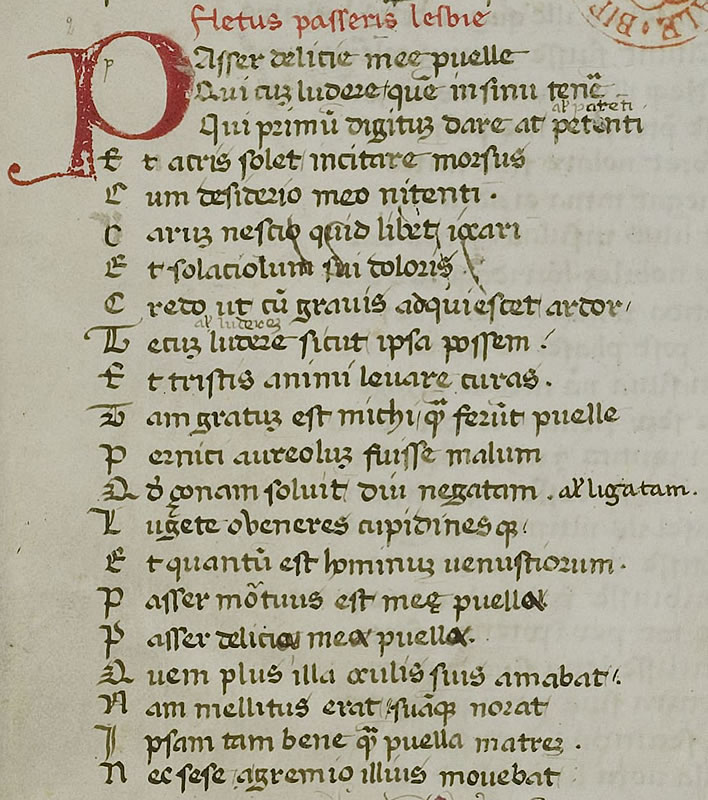 Fletus passeris lesbie
PAsser delicie meę puelle
Qui cuꝫ ludere quē in sinu tenē
al' pateti
Qui primū digituꝫ dare at petenti
Et acris solet incitare morsus
Cum desiderio meo nitenti.
Caruꝫ nescio quid libet iocari
Et solaciolum sui doloris
Credo ut cū grauis adquiescet ardor
al' ludereꝫ
Tecuꝫ ludere sicut ipsa possem
Et tristis animi leuare curas.
Tam gratuꝫ est michi qͣꝫ ferūt puelle
Pernici aureoluꝫ fuisse malum
Qđ çonam soluit diu negatam. al' ligatam.
Lugete o veneres cupidinesqꝫ
Et quantū est hominuꝫ uenustiorum.
Passer mortuus est meę puellę
Passer delicia mea puella.
Quem plus illa oculis suis amabat
Nam mellitus erat suāqꝫ norat
Ipsam tam bene qͣꝫ puella matreꝫ.
Nec sese a gremio illius mouebat